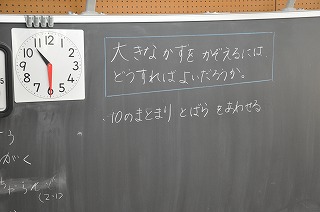 大きなかずをかぞえるには、
どうすればよいだろうか。
・10のまとまりとばらをあわせる
12
1
2
3
4
5
6
7
8
9
10
11
がく
(2-1)